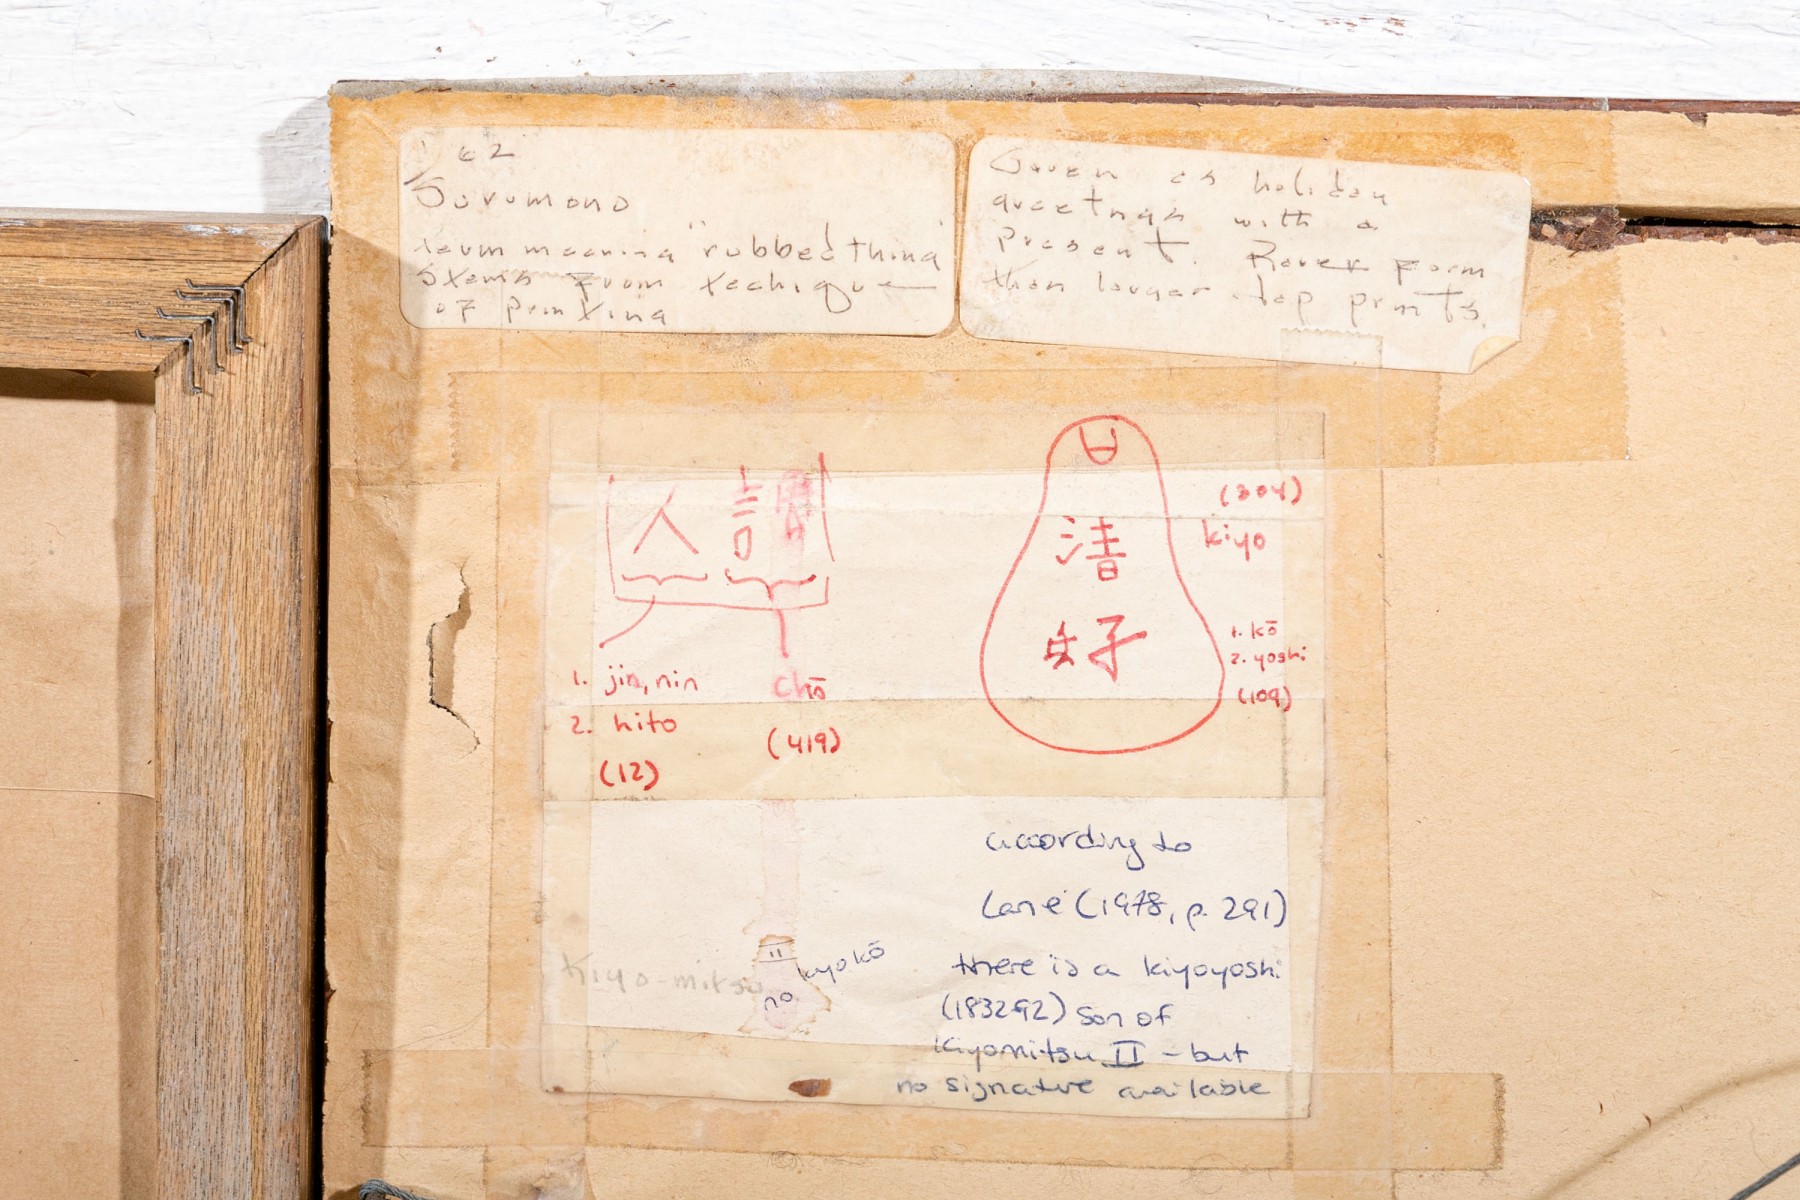 62
Surumono
term meaning "rubbed thing"
stems from techique
of printing
Given as holiday
greetings with a
present. Rarer form
than larger .top prints.
人 言
1. jin, nin
2. hito
(12)
chō
(419)
清
好
(304)
kiyo
1. kō
2. yoshi
(109)
according to
Lane (1978, p. 291)
there is a kiyoyoshi
(1832-92) son of
Kiyomitsu II - but
no signature available
Kiyo-mitsu
no.
kyokō